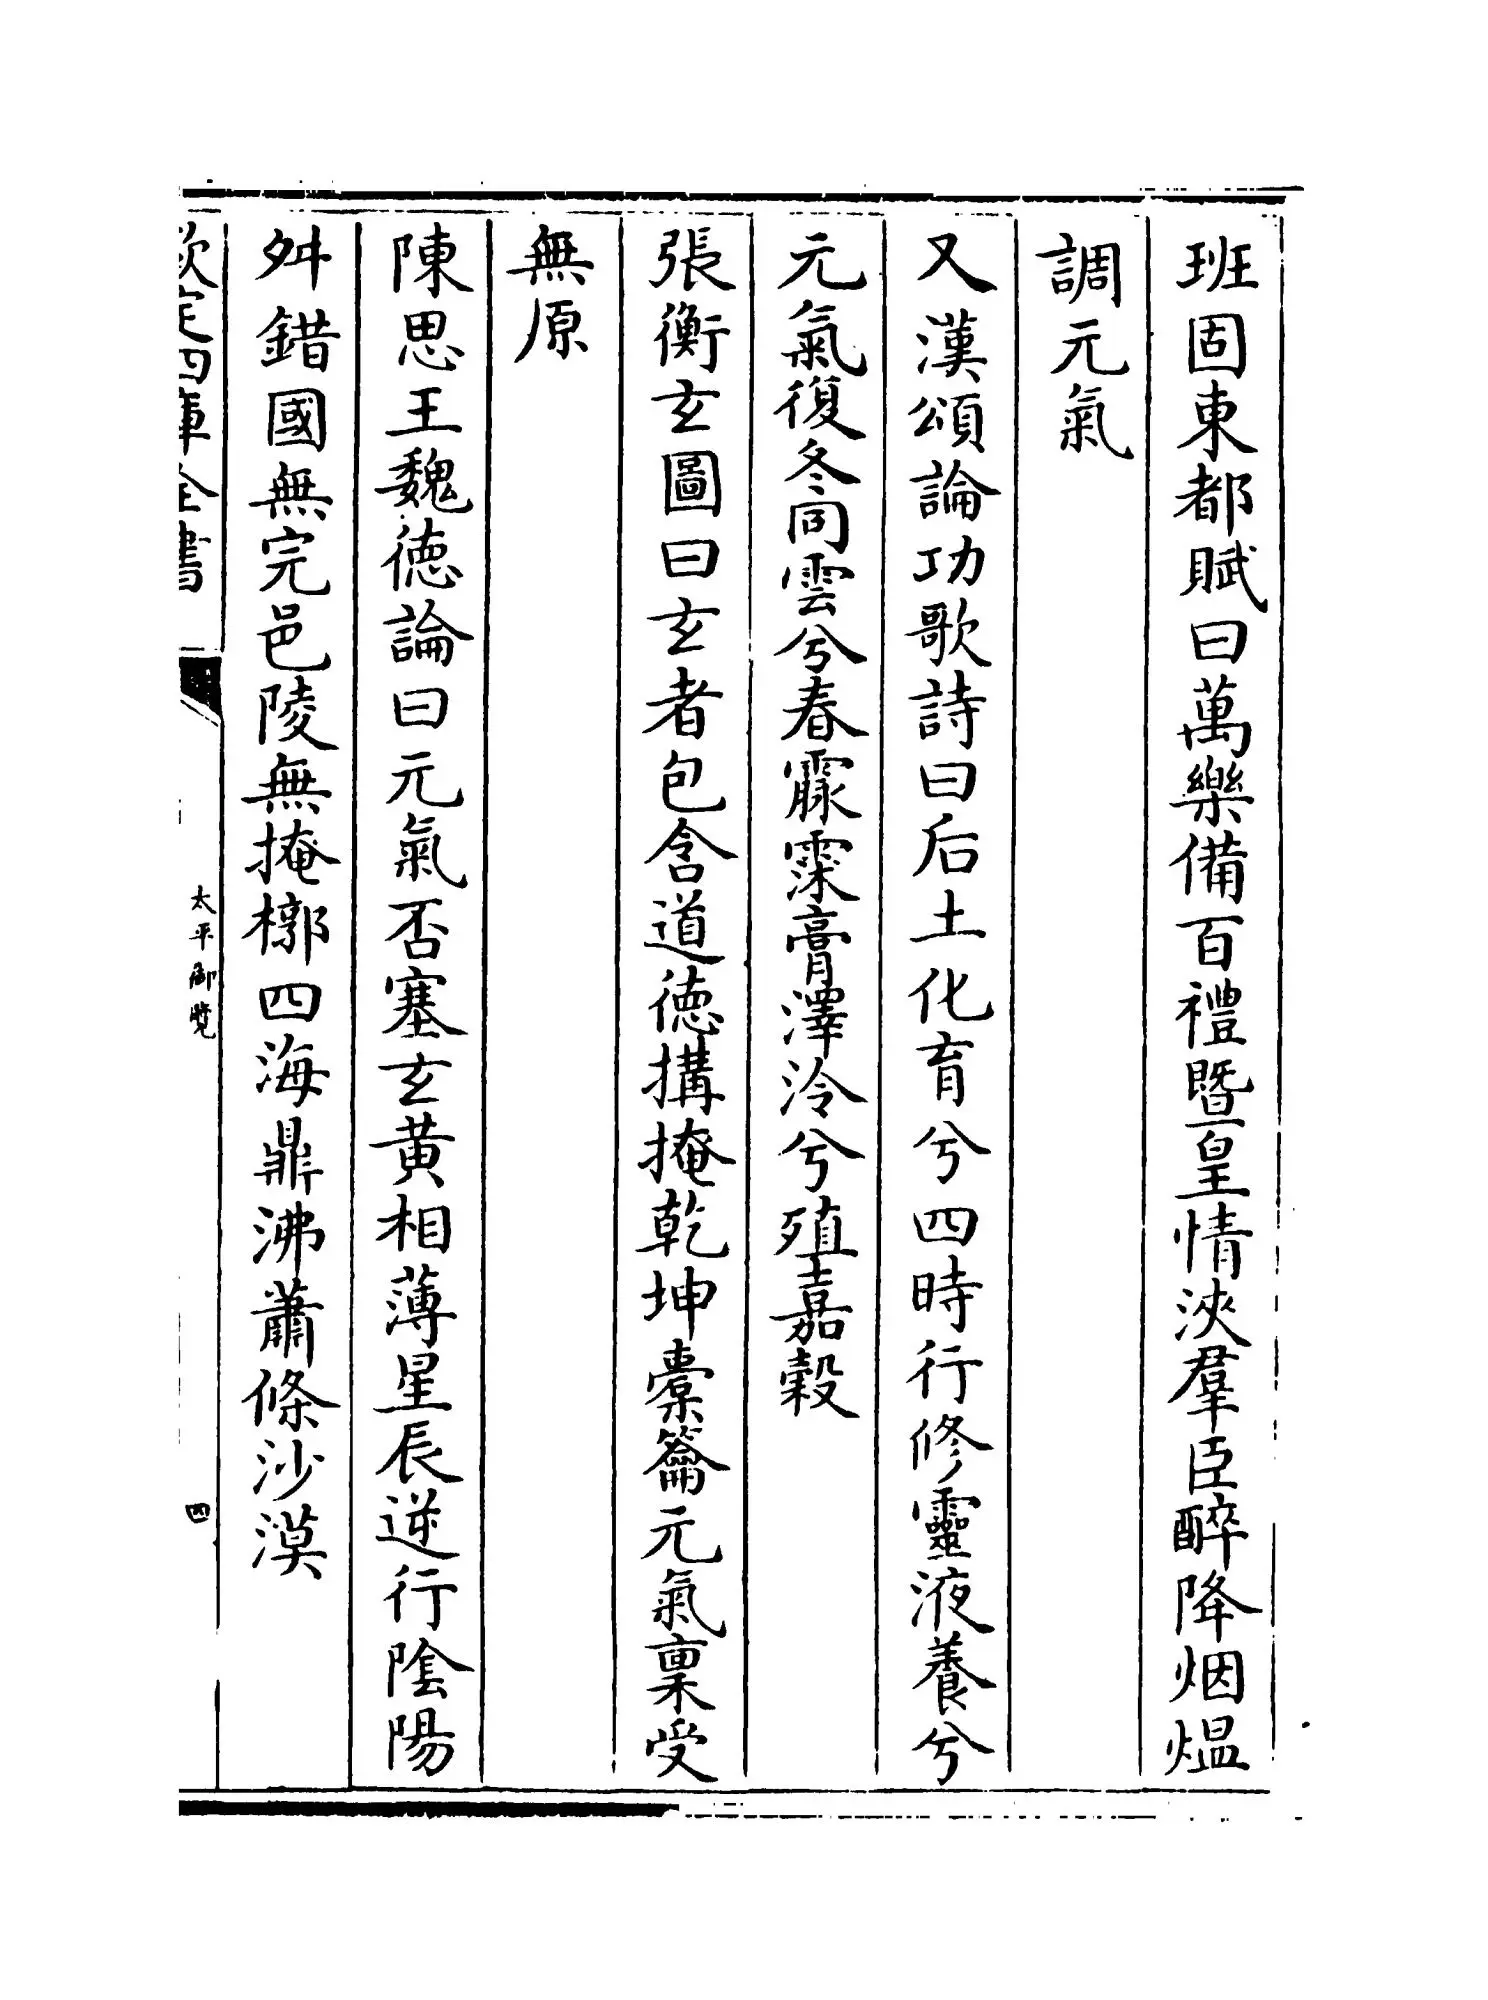 班固東都賦曰萬樂備百禮暨皇情浹羣臣醉降烟煴
調元氣
又漢頌論功歌詩曰后土化育兮四時行修靈液養兮
元氣復冬同雲兮春霢霂膏澤泠兮殖嘉穀
張衡玄圖曰玄者包含道德搆掩乾坤橐籥元氣稟受
無原
陳思王魏德論曰元氣否塞玄黃相薄星辰逆行陰陽
舛錯國無完邑陵無掩槨四海鼎沸蕭條沙漠
欽定四庫全書
太平御覽
四